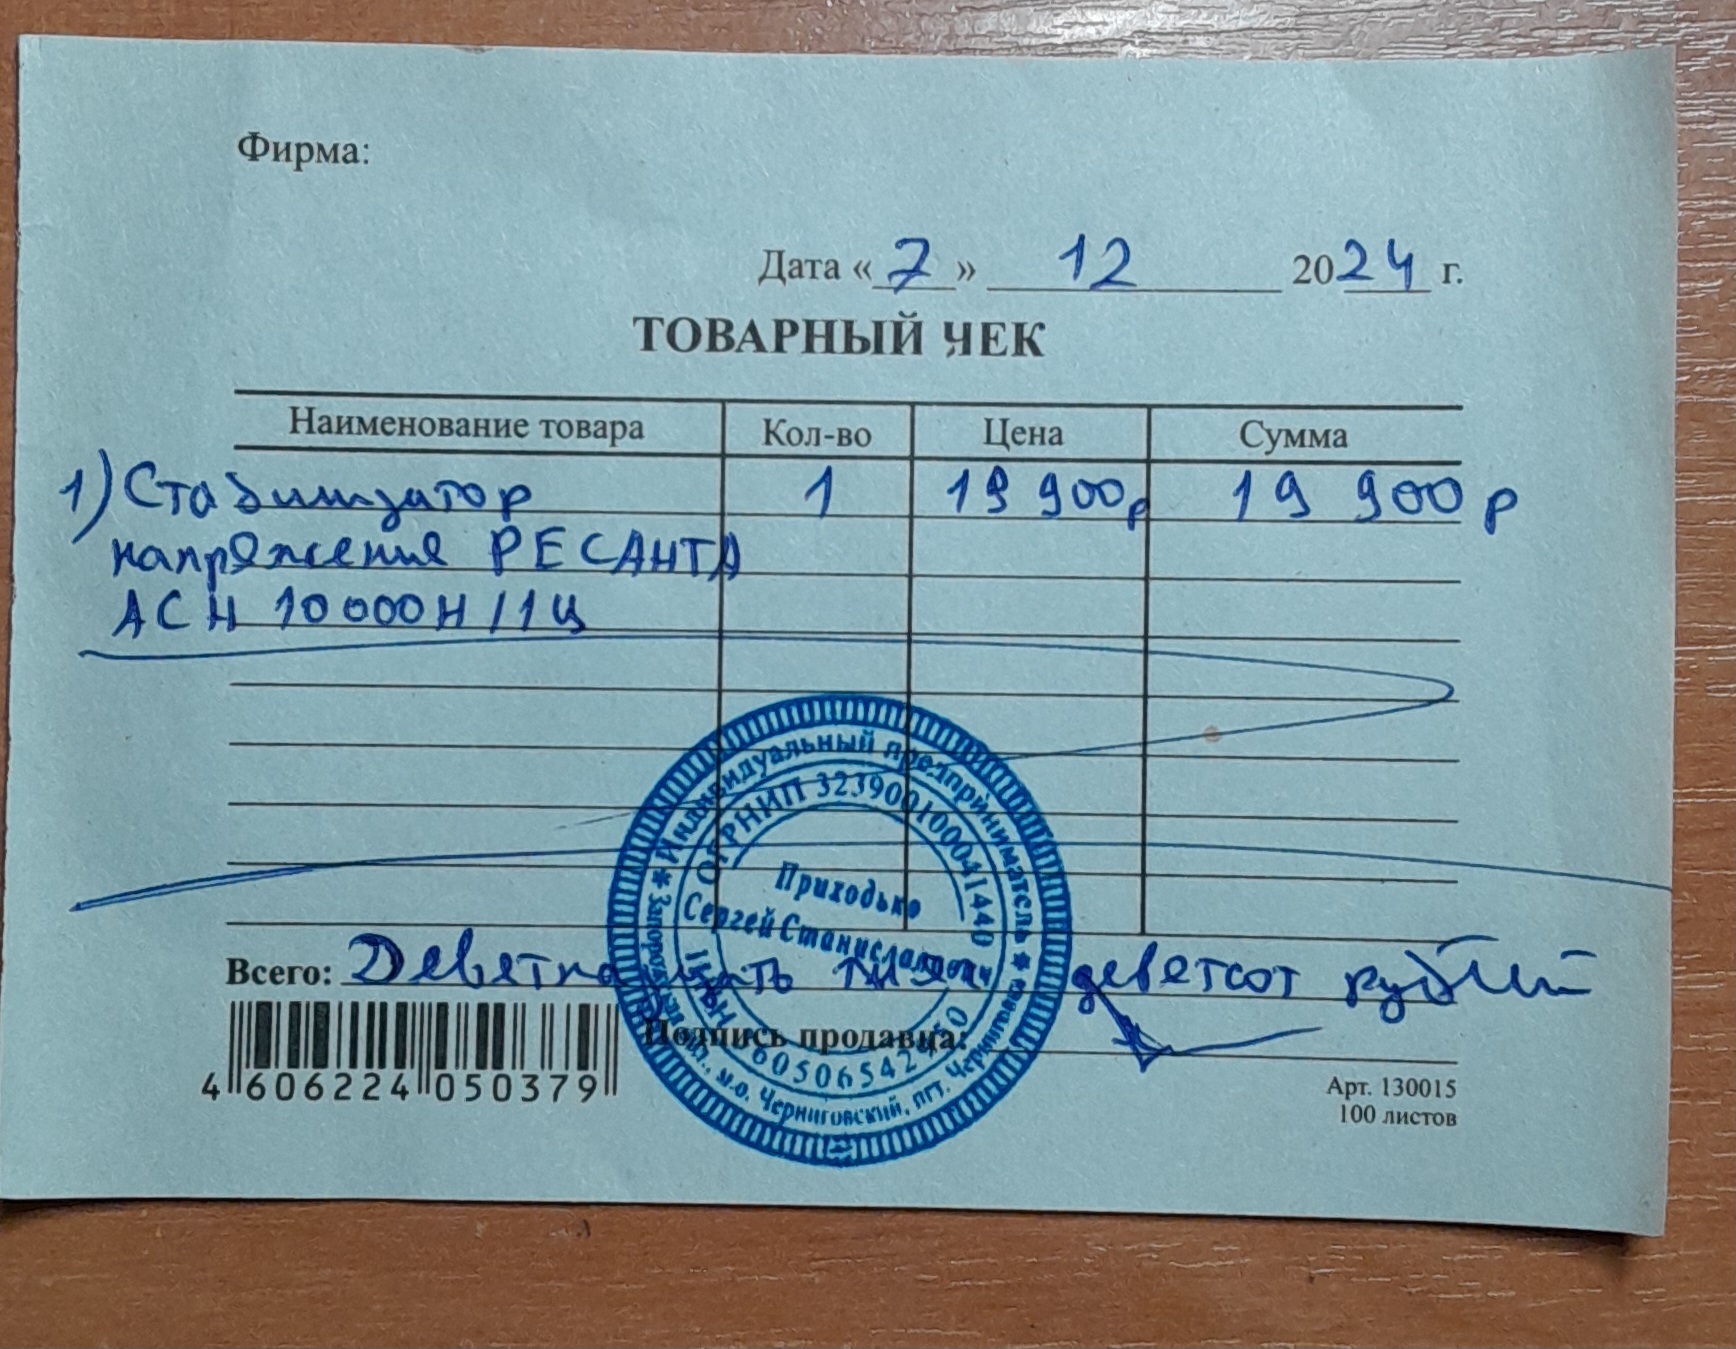 Фирма:
Дата « 7 » 12 2024 г.
ТОВАРНЫЙ ЧЕК
Наименование товара Кол-во Цена Сумма
1) Стабилизатор 1 19 900р 19 900р
напряжения РЕСАНТА
АСН 10000Н/1Ц
Всего: Девятнадцать тысяч девятсот рублей
Подпись продавца:
4 606224 050379
Арт. 130015
100 листов
* Индивидуальный предприниматель *
ОГРНИП 323900100041440
Приходько
Сергей Станиславович
м.о. Черниговский, пгт. Черниговка